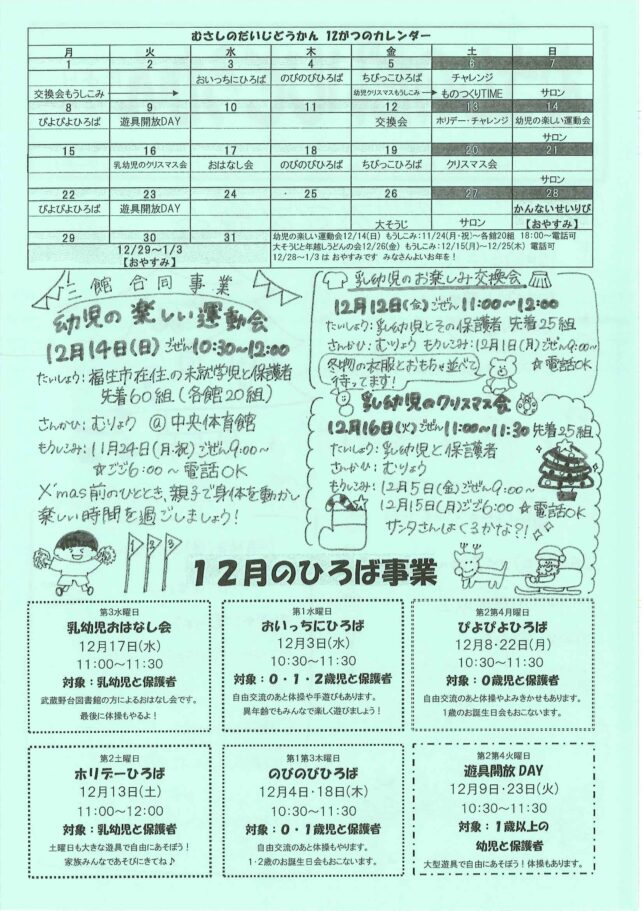 むさしのだいじどうかん 12がつのカレンダー
月 火 水 木 金 土 日
1 2 3 4 5 6 7
おいっちにひろば のびのびひろば ちびっこひろば チャレンジ
交換会もうしこみ 幼児クリスマスもうしこみ ものつくりTIME サロン
8 9 10 11 12 13 14
ぴよぴよひろば 遊具開放DAY 交換会 ホリデー・チャレンジ 幼児の楽しい運動会
サロン
15 16 17 18 19 20 21
乳幼児のクリスマス会 おはなし会 のびのびひろば ちびっこひろば クリスマス会
サロン
22 23 24 25 26 27 28
ぴよぴよひろば 遊具開放DAY かんないせいりび
大そうじ サロン 【おやすみ】
29 30 31
12/29～1/3
【おやすみ】
幼児の楽しい運動会12/14(日) もうしこみ:11/24(月・祝)～各館20組 18:00～電話可
大そうじと年越しうどんの会12/26(金) もうしこみ:12/15(月)～12/25(木) 電話可
12/28～1/3は おやすみです みなさんよいお年を!
三館合同事業
幼児の楽しい運動会
12月14日(日)ごぜん10:30～12:00
たいしょう:福生市在住の未就学児と保護者
先着60組(各館20組)
さんかひ:むりょう @中央体育館
もうしこみ:11月24日(月・祝)ごぜん9:00～
☆ごご6:00～電話OK
X'mas前のひととき、親子で身体を動かし
楽しい時間を過ごしましょう!
1 2 3
乳幼児のお楽しみ交換会
12月12日(金)ごぜん11:00～12:00
たいしょう:乳幼児とその保護者 先着25組
さんかひ:むりょう もうしこみ:12月1日(月)ごぜん9:00～
☆電話OK
冬物の衣服とおもちゃ並べて
待ってます!
乳幼児のクリスマス会
12月16日(火)ごぜん11:00～11:30 先着25組
たいしょう:乳幼児と保護者
さんかひ:むりょう
もうしこみ:12月5日(金)ごぜん9:00～
12月15日(月)ごご6:00 ☆電話OK
サンタさんはくるかな?!
12月のひろば事業
第3水曜日
乳幼児おはなし会
12月17日(水)
11:00～11:30
対象:乳幼児と保護者
武蔵野台図書館の方によるおはなし会です。
最後に体操もやるよ!
第1水曜日
おいっちにひろば
12月3日(水)
10:30～11:30
対象:0・1・2歳児と保護者
自由交流のあと体操や手遊びもあります。
異年齢でもみんなで楽しく遊びましょう!
第2第4月曜日
ぴよぴよひろば
12月8・22日(月)
10:30～11:30
対象:0歳児と保護者
自由交流のあと体操やよみきかせもあります。
1歳のお誕生日会もおこないます。
第2土曜日
ホリデーひろば
12月13日(土)
11:00～12:00
対象:乳幼児と保護者
土曜日も大きな遊具で自由にあそぼう!
家族みんなであそびにきてね♪
第1第3木曜日
のびのびひろば
12月4日・18日(木)
10:30～11:30
対象:0・1歳児と保護者
自由交流のあと体操もやります。
1・2歳のお誕生日会もおこないます。
第2第4火曜日
遊具開放DAY
12月9日・23日(火)
10:30～11:30
対象:1歳以上の
幼児と保護者
大型遊具で自由にあそぼう!体操もあります。